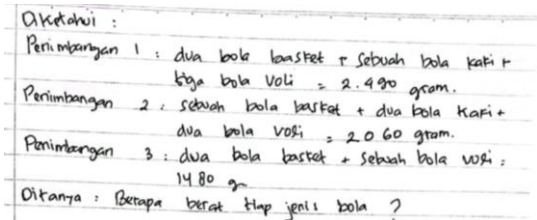 Diketahui :
Penimbangan 1 : dua bola basket + sebuah bola kaki +
tiga bola voli = 2.490 gram.
Penimbangan 2 : sebuah bola basket + dua bola kaki +
dua bola voli = 2060 gram.
Penimbangan 3 : dua bola basket + sebuah bola voli =
1480 g
Ditanya : Berapa berat tiap jenis bola ?